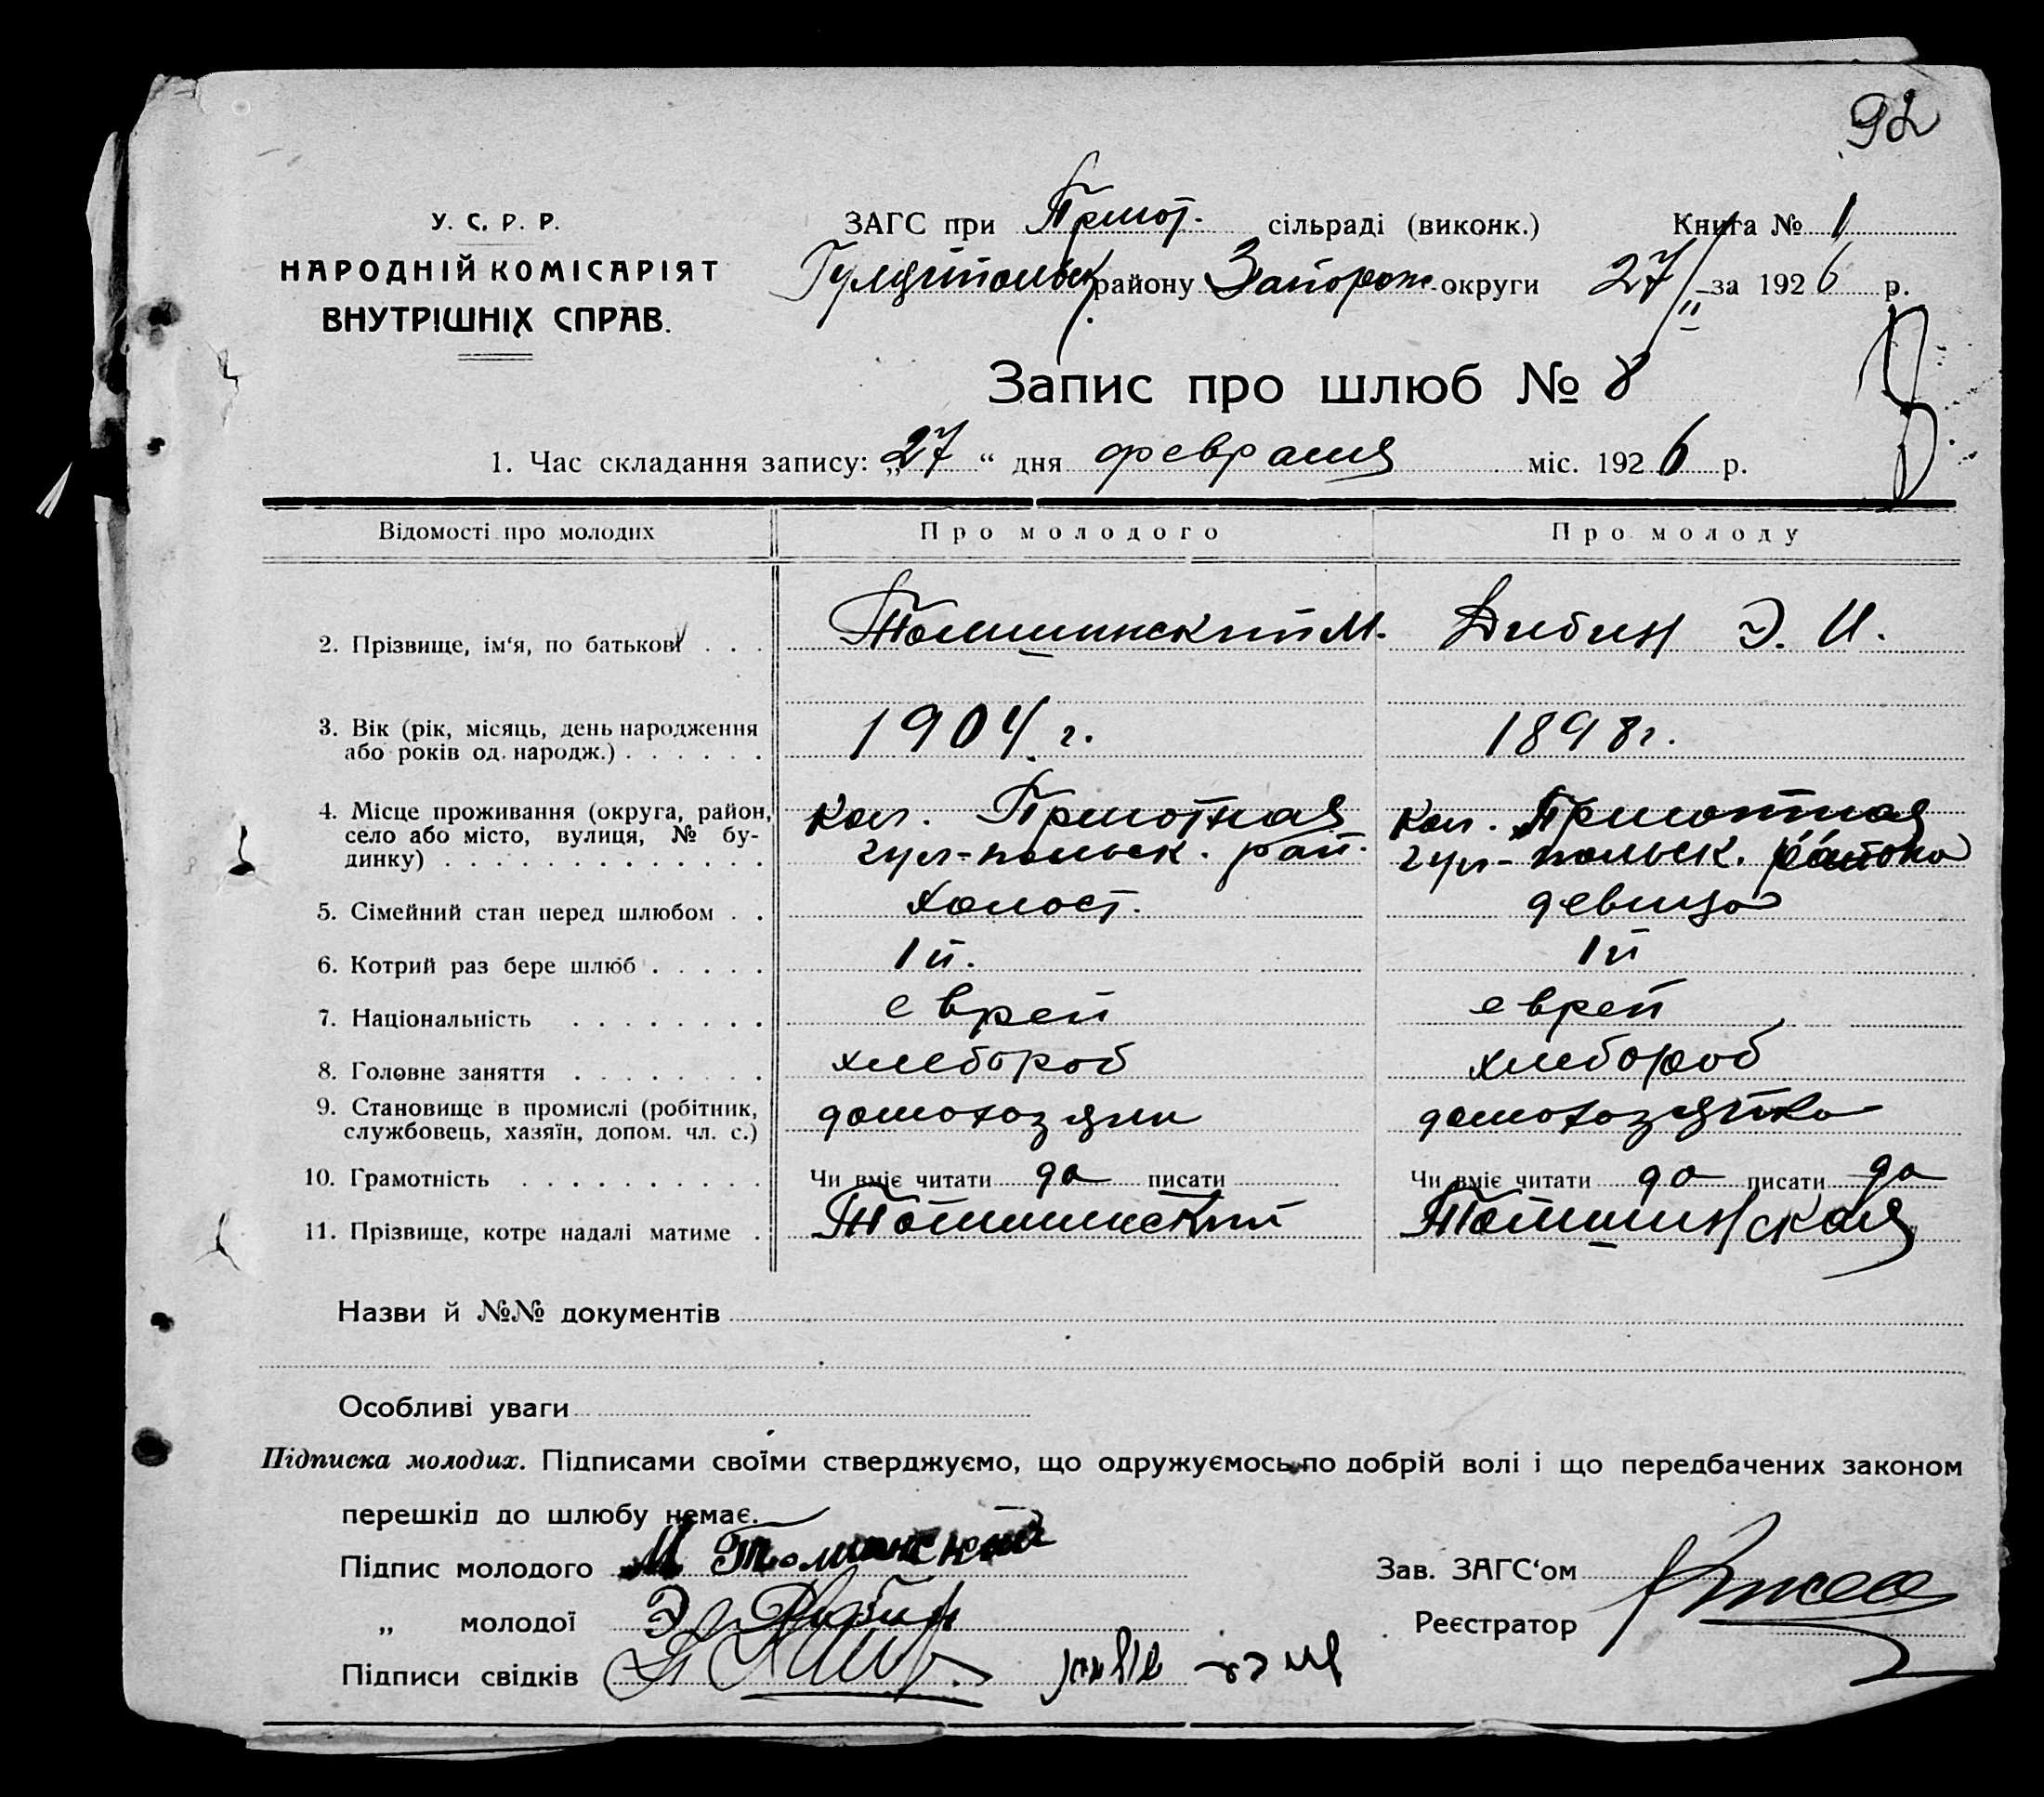 92
У. С. Р. Р.
НАРОДНІЙ КОМІСАРІЯТ
ВНУТРІШНІХ СПРАВ.
ЗАГС при Примот. сільраді (виконк.) Книга № 1
Гуляйпольск району Запорож округи 27/II за 1926 р.
Запис про шлюб № 8
1. Час складання запису: „27“ дня февраля міс. 1926 р.
Відомості про молодих Про молодого Про молоду
2. Прізвище, ім‘я, по батькові . . . М. Э. И.
3. Вік (рік, місяць, день народження 1904 г. 1898 г.
або років од. народж.) . . . . . .
4. Місце проживання (округа, район, кол. кол.
село або місто, вулиця, № бу- гул-польск. рай. гул-польск. района
динку) . . . . . . . . . . . . .
5. Сімейний стан перед шлюбом . . холост. девица
6. Котрий раз бере шлюб . . . . . 1й. 1й
7. Національність . . . . . . . . еврей еврей
8. Головне заняття . . . . . . . . хлебороб хлебороб
9. Становище в промислі (робітник, домохозяин домохозяйка
службовець, хазяїн, допом. чл. с.)
10. Грамотність . . . . . . . . . . Чи вміє читати да писати Чи вміє читати да писати да
11. Прізвище, котре надалі матиме .
Назви й №№ документів
Особливі уваги
Підписка молодих. Підписами своїми стверджуємо, що одружуємось по добрій волі і що передбачених законом
перешкід до шлюбу немає.
Підпис молодого М Зав. ЗАГС‘ом
„ молодої Э Реєстратор
Підписи свідків